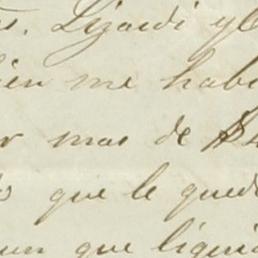 . Lizardi y C
ien me hab
r mas de $
que le qued
un que liqui